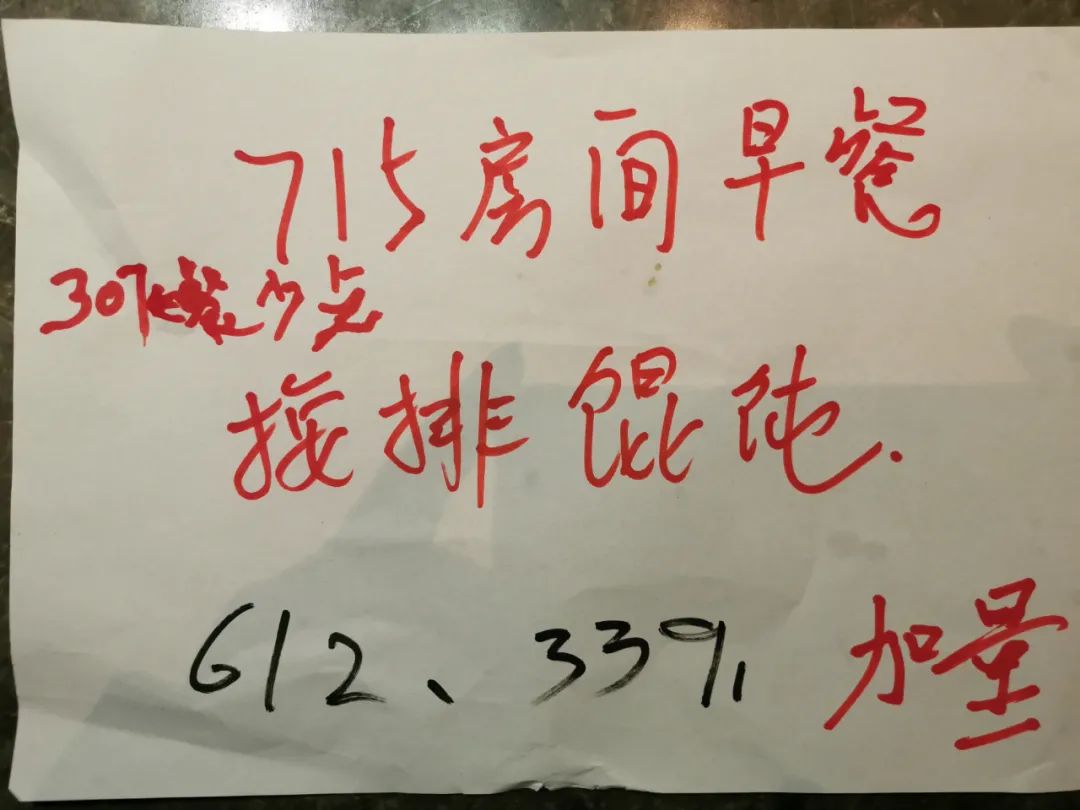 715房间早餐
307餐少点
按排馄饨.
612、339, 加量